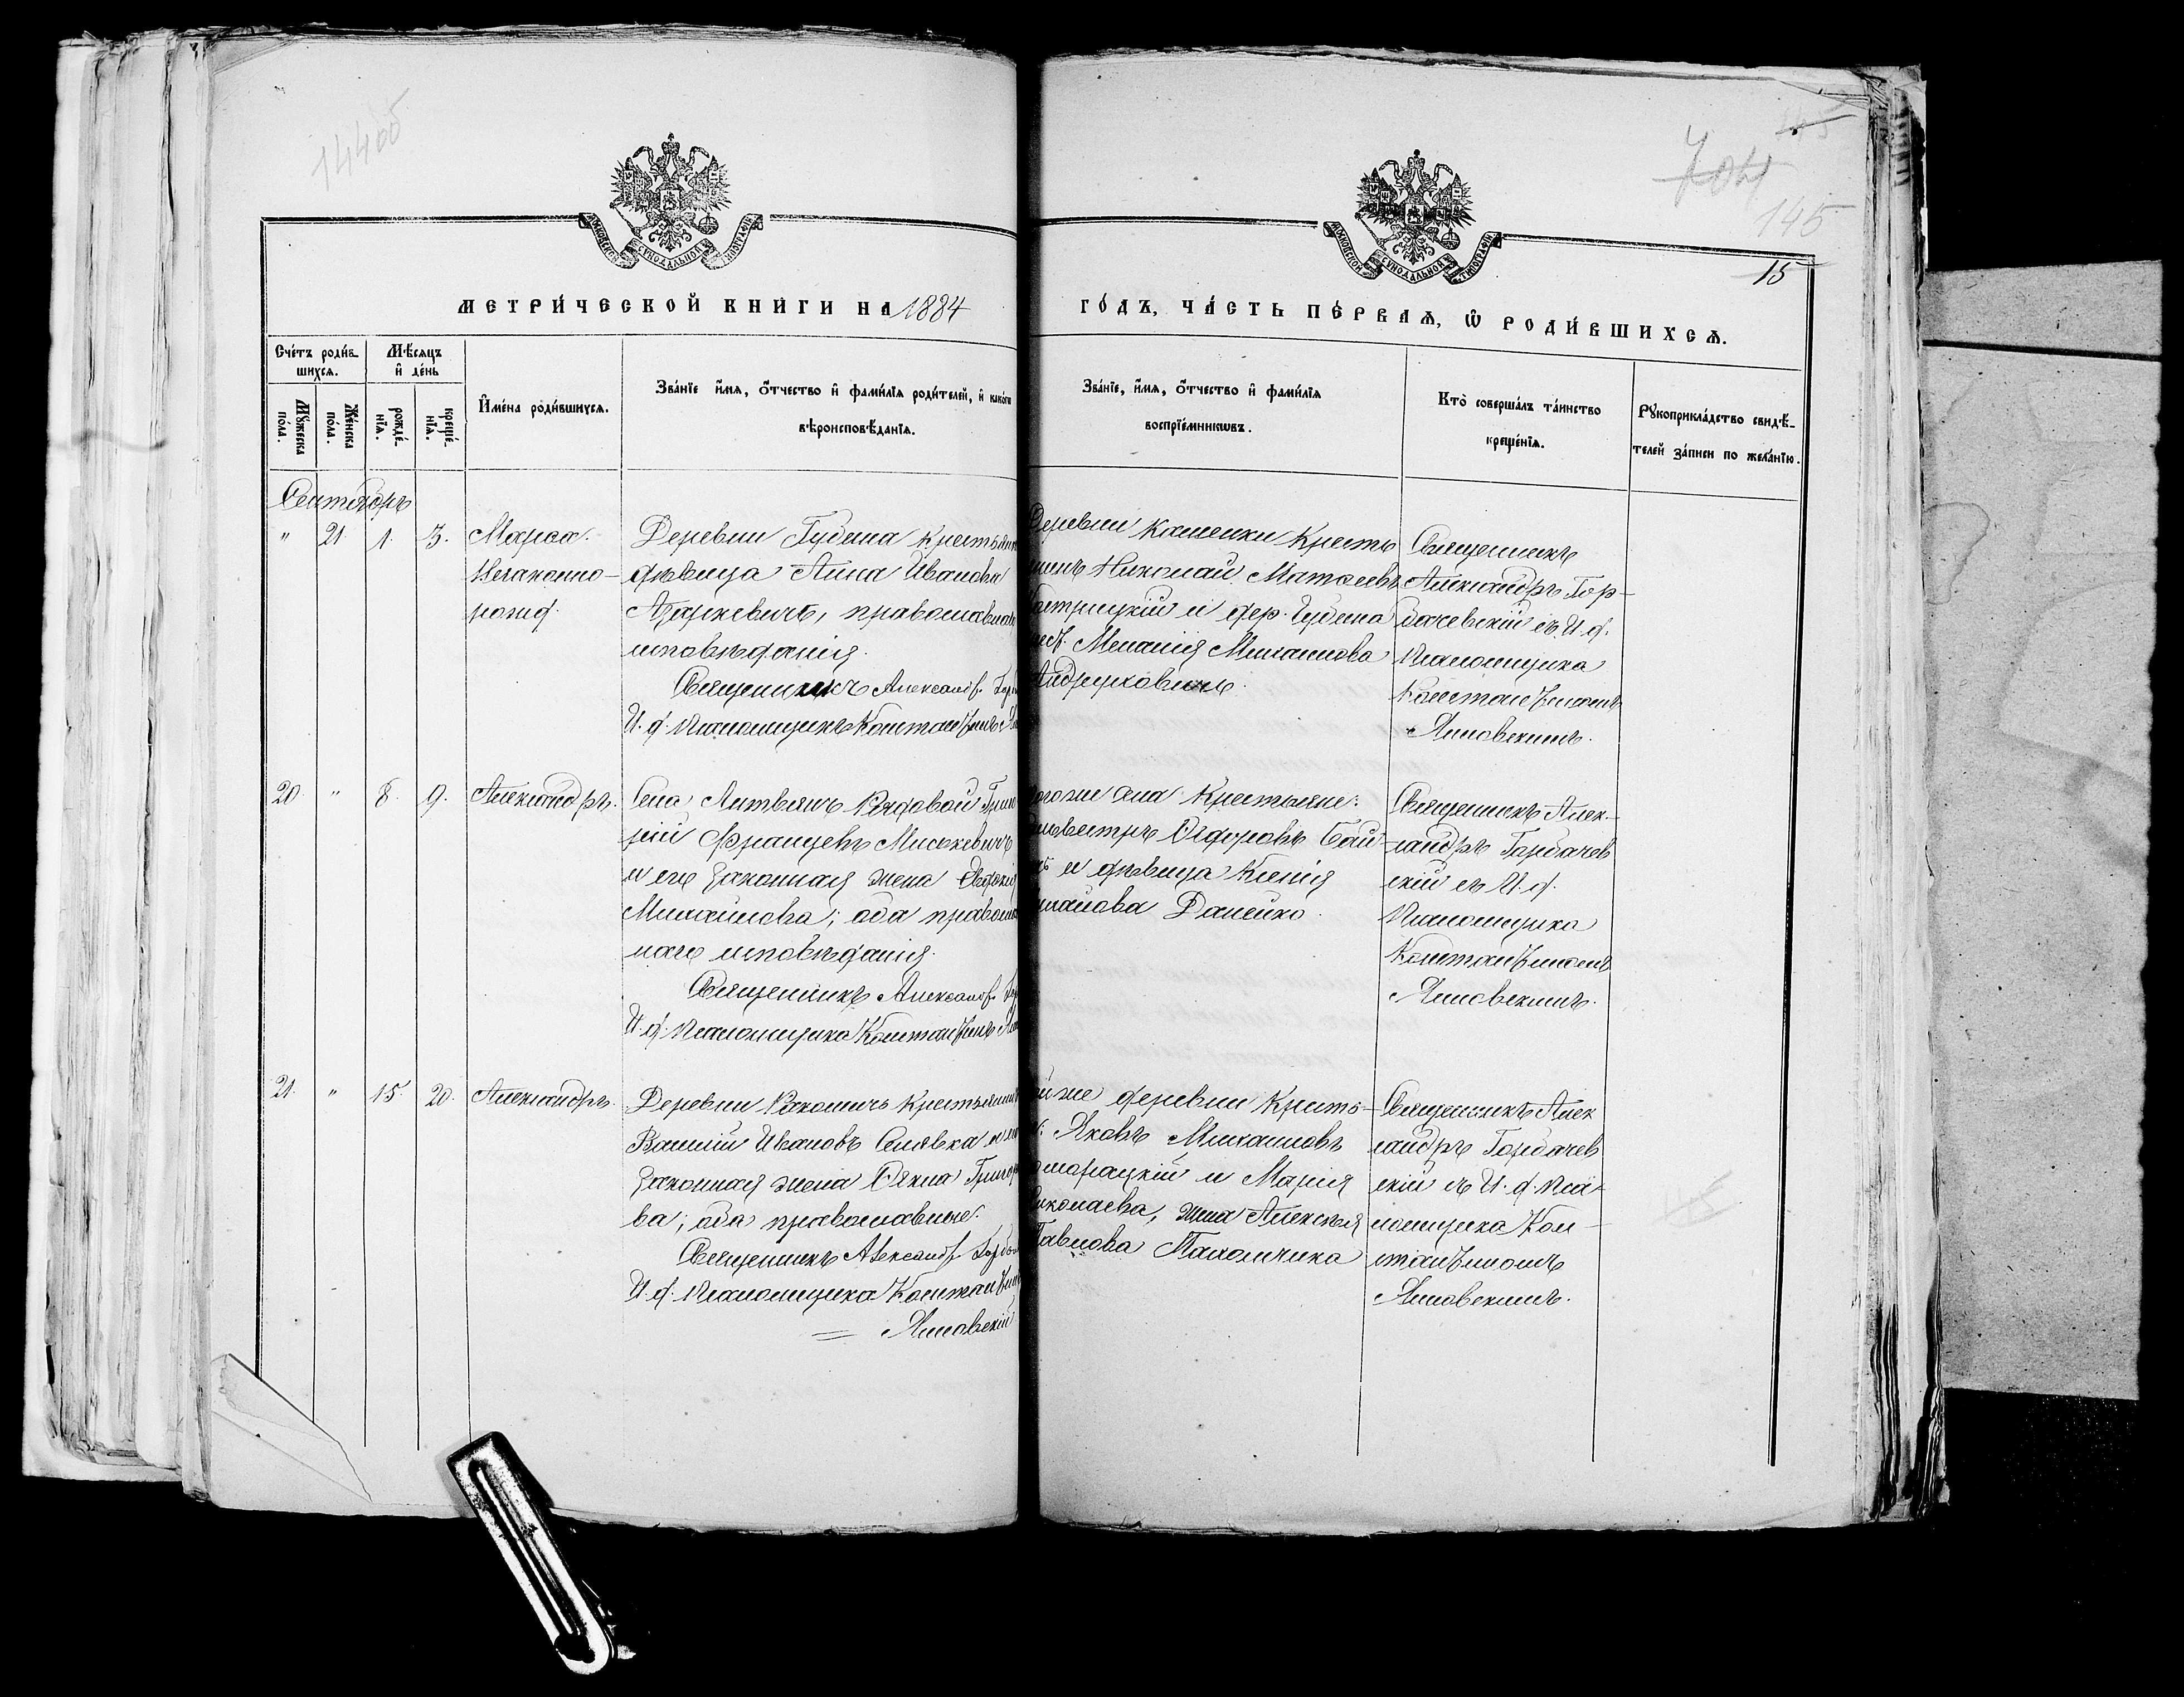 144об
704
145
15
МОСКОВСКОЙ СѴНОДАЛЬНОЙ ТИПОГРАФІИ
МОСКОВСКОЙ СѴНОДАЛЬНОЙ ТИПОГРАФІИ
МЕТРИ́ЧЕСКОЙ КНИ́ГИ НА 1884
ГО́ДЪ, ЧА́СТЬ ПЕ́РВАѦ, Ѡ҆ РОДИ́ВШИХСѦ.
Сче́тъ роди́в-
шихсѧ.
Мꙋ́жеска по́ла.
Же́нска по́ла.
Мѣ́сѧцъ
и҆ де́нь
рожде́-
нїѧ.
креще́-
нїѧ.
И҆мена̀ роди́вшихсѧ.
Зва́нїе и҆́мѧ, ѻ҆́тчество и҆ фами́лїѧ роди́телей, и҆ како́гѡ
вѣроисповѣ́данїѧ.
Зва́нїе, и҆́мѧ, ѻ҆́тчество и҆ фами́лїѧ
воспрїе́мникѡвъ.
Кто̀ соверша́лъ та́инство
креще́нїѧ.
Рꙋкоприкла́дство свидѣ́-
телей за́писи по жела́нїю.
Сентябрь
" 21. 1. 3.
Марѳа.
Незаконно-
рожд.
Деревни Гудена крестьян
дѣвица Анна Иванова
Азаркевичъ, православна
исповѣданія.
Священникъ Александ. Гор
И. д. Псаломщика Констант
Деревни Каменки кресть
нинъ Николай Матѳеевъ
и дер. Гудена
Меланія Михаилова
Андрухович
Священникъ
Александръ Гор-
бачевскій съ И. д.
Псаломщика
Константиномъ
Яновскимъ.
20. " 8. 9.
Александръ.
Села Литвянъ Рядовой Григо
рій Францевъ Миськевичъ
и его законная жена Евдокія
Михайлова; оба правосла
наго исповѣданія.
Священникъ Александ. Гор
И. д. Псаломщика Константинъ
тогоже села крестьяне:
Сильвестръ Ѳедоровъ Бай
и дѣвица Ксенія
Данейко.
Священникъ Алек-
сандръ Горбачев
скій съ И. д.
Псаломщика
Константиномъ
Яновскимъ.
21. " 15. 20.
Александръ.
Деревни крестьянинъ
Василій Ивановъ Селявка
законная жена Ѳекла Григорь
ва; оба православные.
Священникъ Александ. Горба
И. д. Псаломщика Константин
Яновскій
же деревни кресть-
Яковъ Михаиловъ
и Марія
Николаева, жена Алексѣя
Павлова
Священникъ Алек
сандръ Горбачев
скій съ И. д. Пса-
ломщика Кон-
стантиномъ
Яновскимъ.